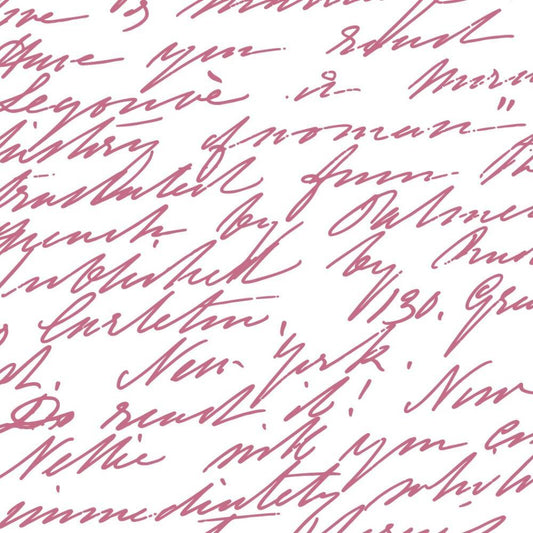 Have you read
Legouvè
history of woman"
translated from
French by Palmer
Published by
Carleton, 130. Gra
st. New-York.
Do read it! Now
Nellie will you
immediately